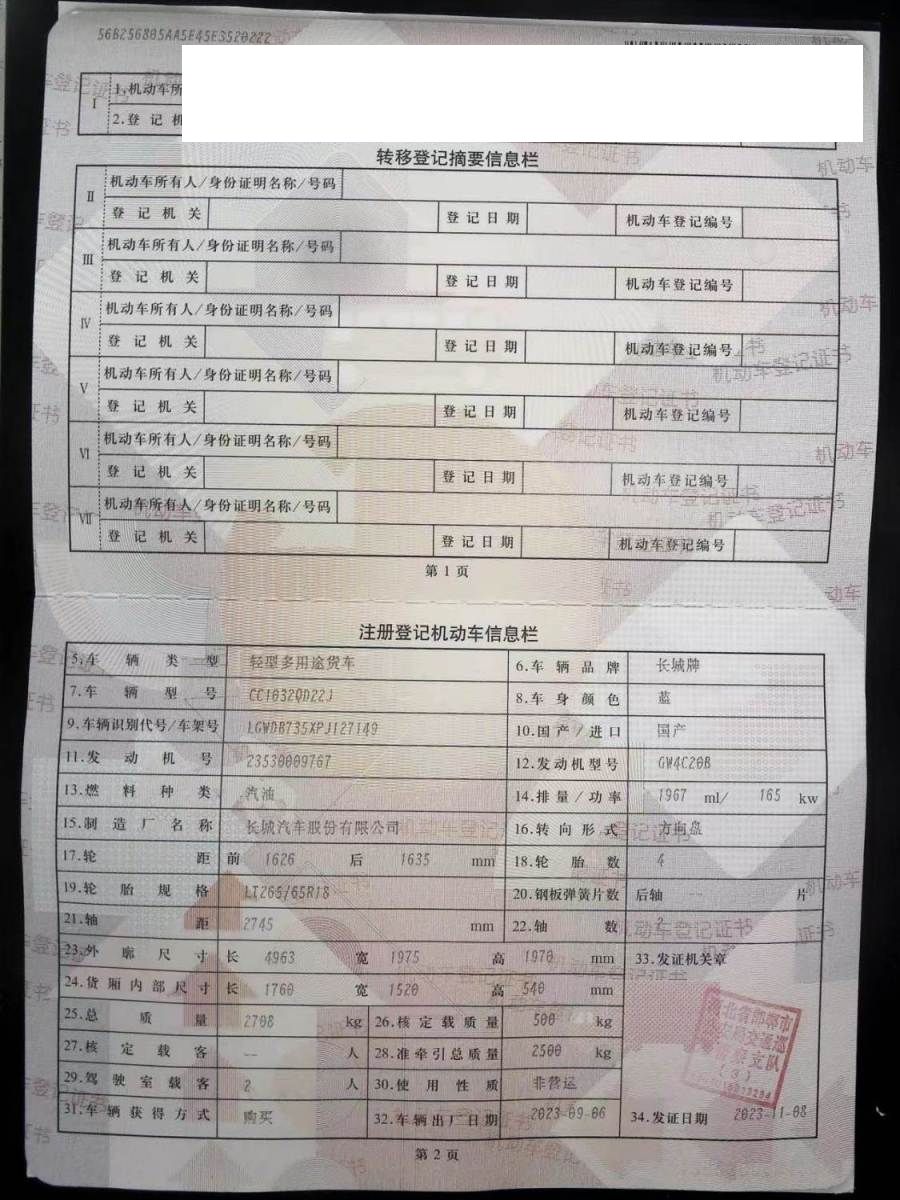 56B256805AA5E45E3520222
Ⅰ 1.机动车所
2.登记机
转移登记摘要信息栏
Ⅱ 机动车所有人/身份证明名称/号码
登记机关 登记日期 机动车登记编号
Ⅲ 机动车所有人/身份证明名称/号码
登记机关 登记日期 机动车登记编号
Ⅳ 机动车所有人/身份证明名称/号码
登记机关 登记日期 机动车登记编号
Ⅴ 机动车所有人/身份证明名称/号码
登记机关 登记日期 机动车登记编号
Ⅵ 机动车所有人/身份证明名称/号码
登记机关 登记日期 机动车登记编号
Ⅶ 机动车所有人/身份证明名称/号码
登记机关 登记日期 机动车登记编号
第1页
注册登记机动车信息栏
5.车辆类型 轻型多用途货车 6.车辆品牌 长城牌
7.车辆型号 CC1032QD22J 8.车身颜色 蓝
9.车辆识别代号/车架号 LGWDB735XPJ127149 10.国产/进口 国产
11.发动机号 23530009767 12.发动机型号 GW4C20B
13.燃料种类 汽油 14.排量/功率 1967 ml/ 165 kw
15.制造厂名称 长城汽车股份有限公司 16.转向形式 方向盘
17.轮距 前 1626 后 1635 mm 18.轮胎数 4
19.轮胎规格 LT265/65R18 20.钢板弹簧片数 后轴 -- 片
21.轴距 2745 mm 22.轴数 2
23.外廓尺寸 长 4963 宽 1975 高 1970 mm 33.发证机关章
24.货厢内部尺寸 长 1760 宽 1520 高 540 mm
25.总质量 2708 kg 26.核定载质量 500 kg
27.核定载客 -- 人 28.准牵引总质量 2500 kg
29.驾驶室载客 2 人 30.使用性质 非营运
31.车辆获得方式 购买 32.车辆出厂日期 2023-09-06 34.发证日期 2023-11-08
第2页